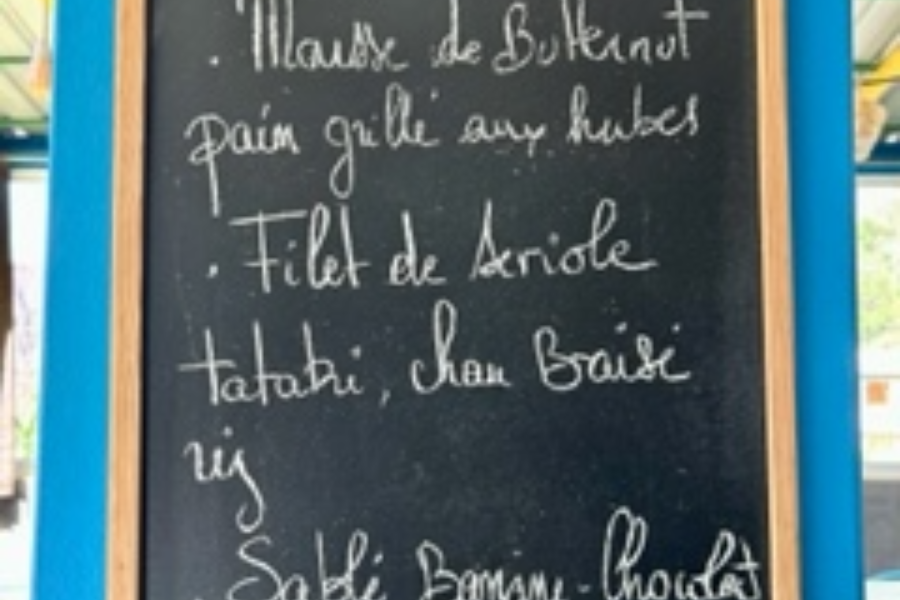 . Mousse de Butternut
pain grillé aux herbes
. Filet de Seriole
tataki, chou Braisé
riz
. Sablé Banane-Chocolat